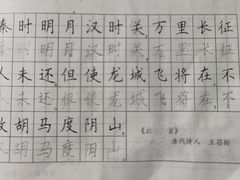 秦时明月汉时关,万里长征
秦时明月汉时关,万里长征
人未还但使龙城飞将在,不
人未还但使龙城飞将在,不
教胡马度阴山.
教胡马度阴山
《出 首》
唐代诗人 王昌龄